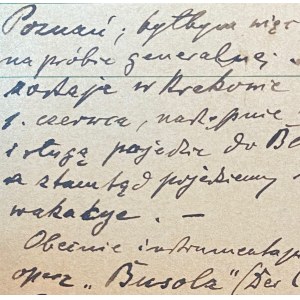 Poznań; byłbym więc
na próbie generalnej
zostaję w Krakowie
1. czerwca, następnie
i sługą pojedzie do
a stamtąd pojedziemy
wakacje. —
Obecnie instrumentuję
operę „Busola" (Der